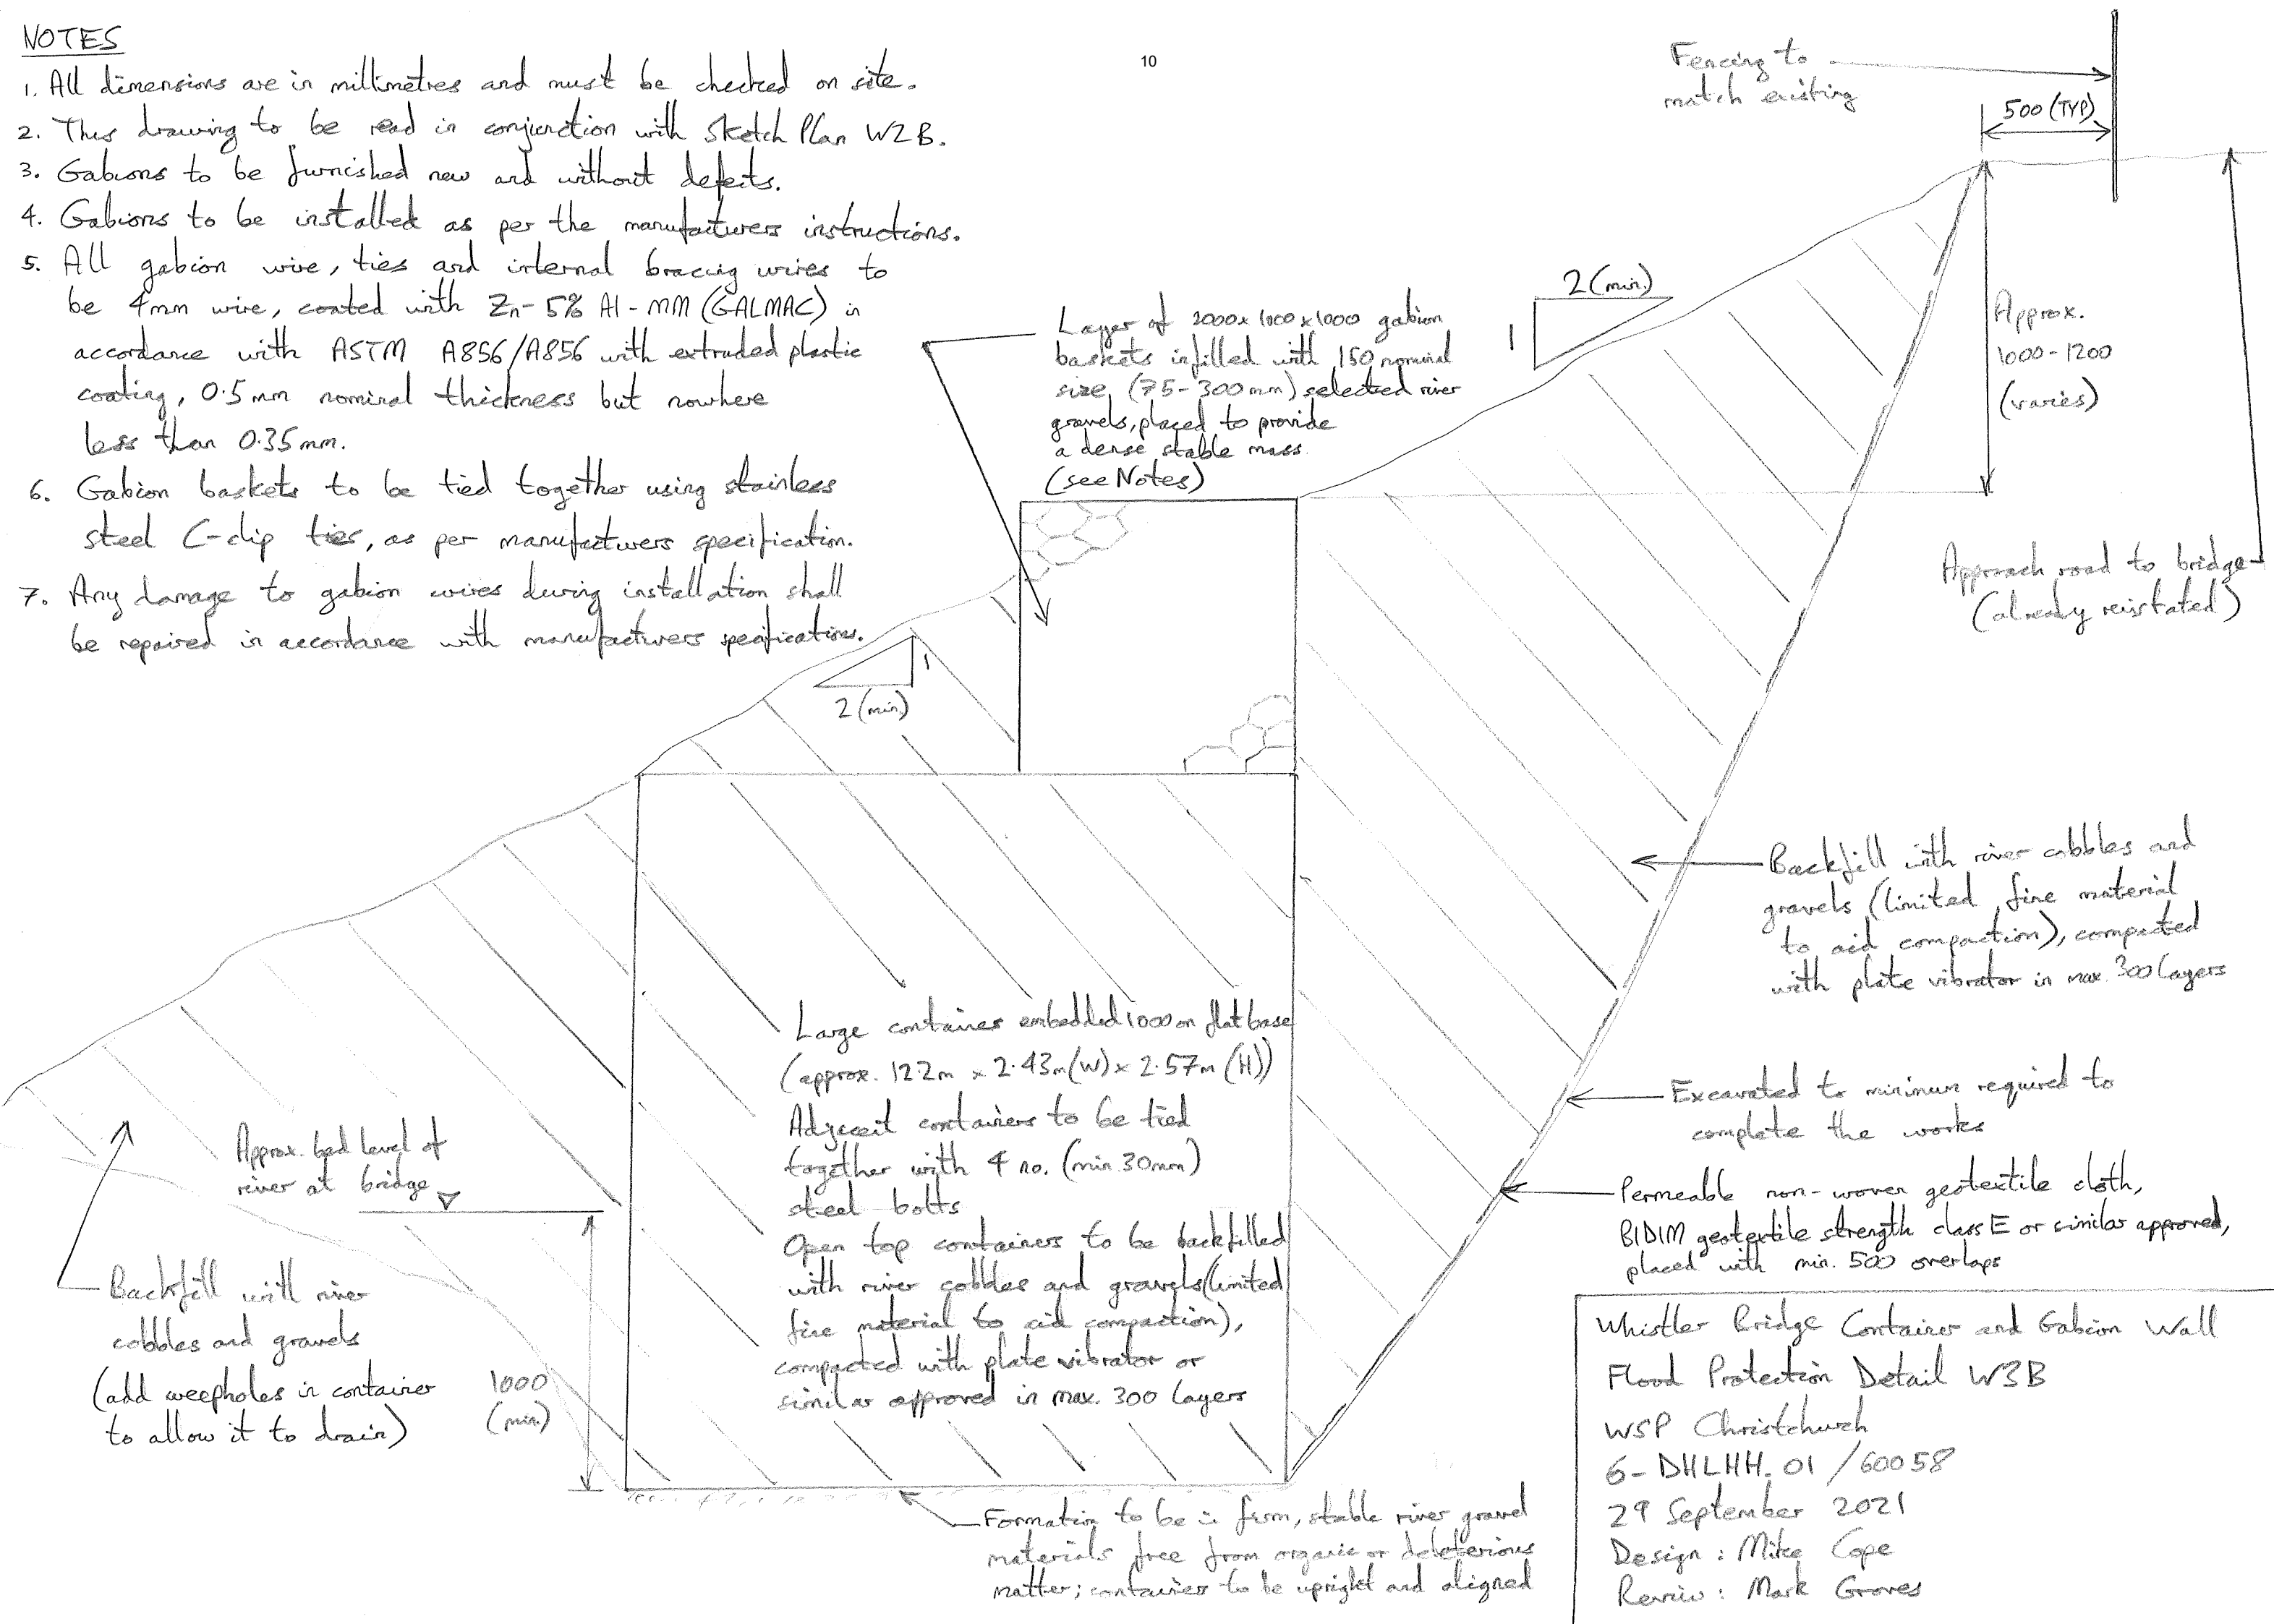 NOTES
1. All dimensions are in millimetres and must be checked on site.
2. This drawing to be read in conjunction with Sketch Plan W2B.
3. Gabions to be furnished new and without defects.
4. Gabions to be installed as per the manufacturers instructions.
5. All gabion wire, ties and internal bracing wires to
be 4mm wire, coated with Zn-5% Al-MM (GALMAC) in
accordance with ASTM A856/A856 with extruded plastic
coating, 0.5mm nominal thickness but nowhere
less than 0.35mm.
6. Gabion baskets to be tied together using stainless
steel C-clip ties, as per manufacturers specification.
7. Any damage to gabion wires during installation shall
be repaired in accordance with manufacturers specifications.
10
Fencing to
match existing
500 (TYP)
2 (min.)
1
Approx.
1000-1200
(varies)
Layer of 2000x1000x1000 gabion
baskets infilled with 150 nominal
size (75-300mm) selected river
gravels, placed to provide
a dense stable mass.
(see Notes)
Approach road to bridge
(already reinstated)
1
2 (min.)
Backfill with river cobbles and
gravels (limited fine material
to aid compaction), compacted
with plate vibrator in max. 300 layers
Large container embedded 1000 on flat base
(approx. 12.2m x 2.43m (W) x 2.57m (H))
Adjacent containers to be tied
together with 4 no. (min 30mm)
steel bolts
Open top containers to be backfilled
with river cobbles and gravels (limited
fine material to aid compaction),
compacted with plate vibrator or
similar approved in max. 300 layers
Excavated to minimum required to
complete the works
Permeable non-woven geotextile cloth,
BIDIM geotextile strength class E or similar approved,
placed with min. 500 overlaps
Approx. bed level of
river at bridge
Backfill with river
cobbles and gravels
(add weepholes in container
to allow it to drain)
1000
(min.)
Formation to be in firm, stable river gravel
materials free from organic or deleterious
matter; container to be upright and aligned
Whistler Bridge Container and Gabion Wall
Flood Protection Detail W3B
WSP Christchurch
6-DHLHH.01/60058
29 September 2021
Design: Mike Cope
Review: Mark Groves